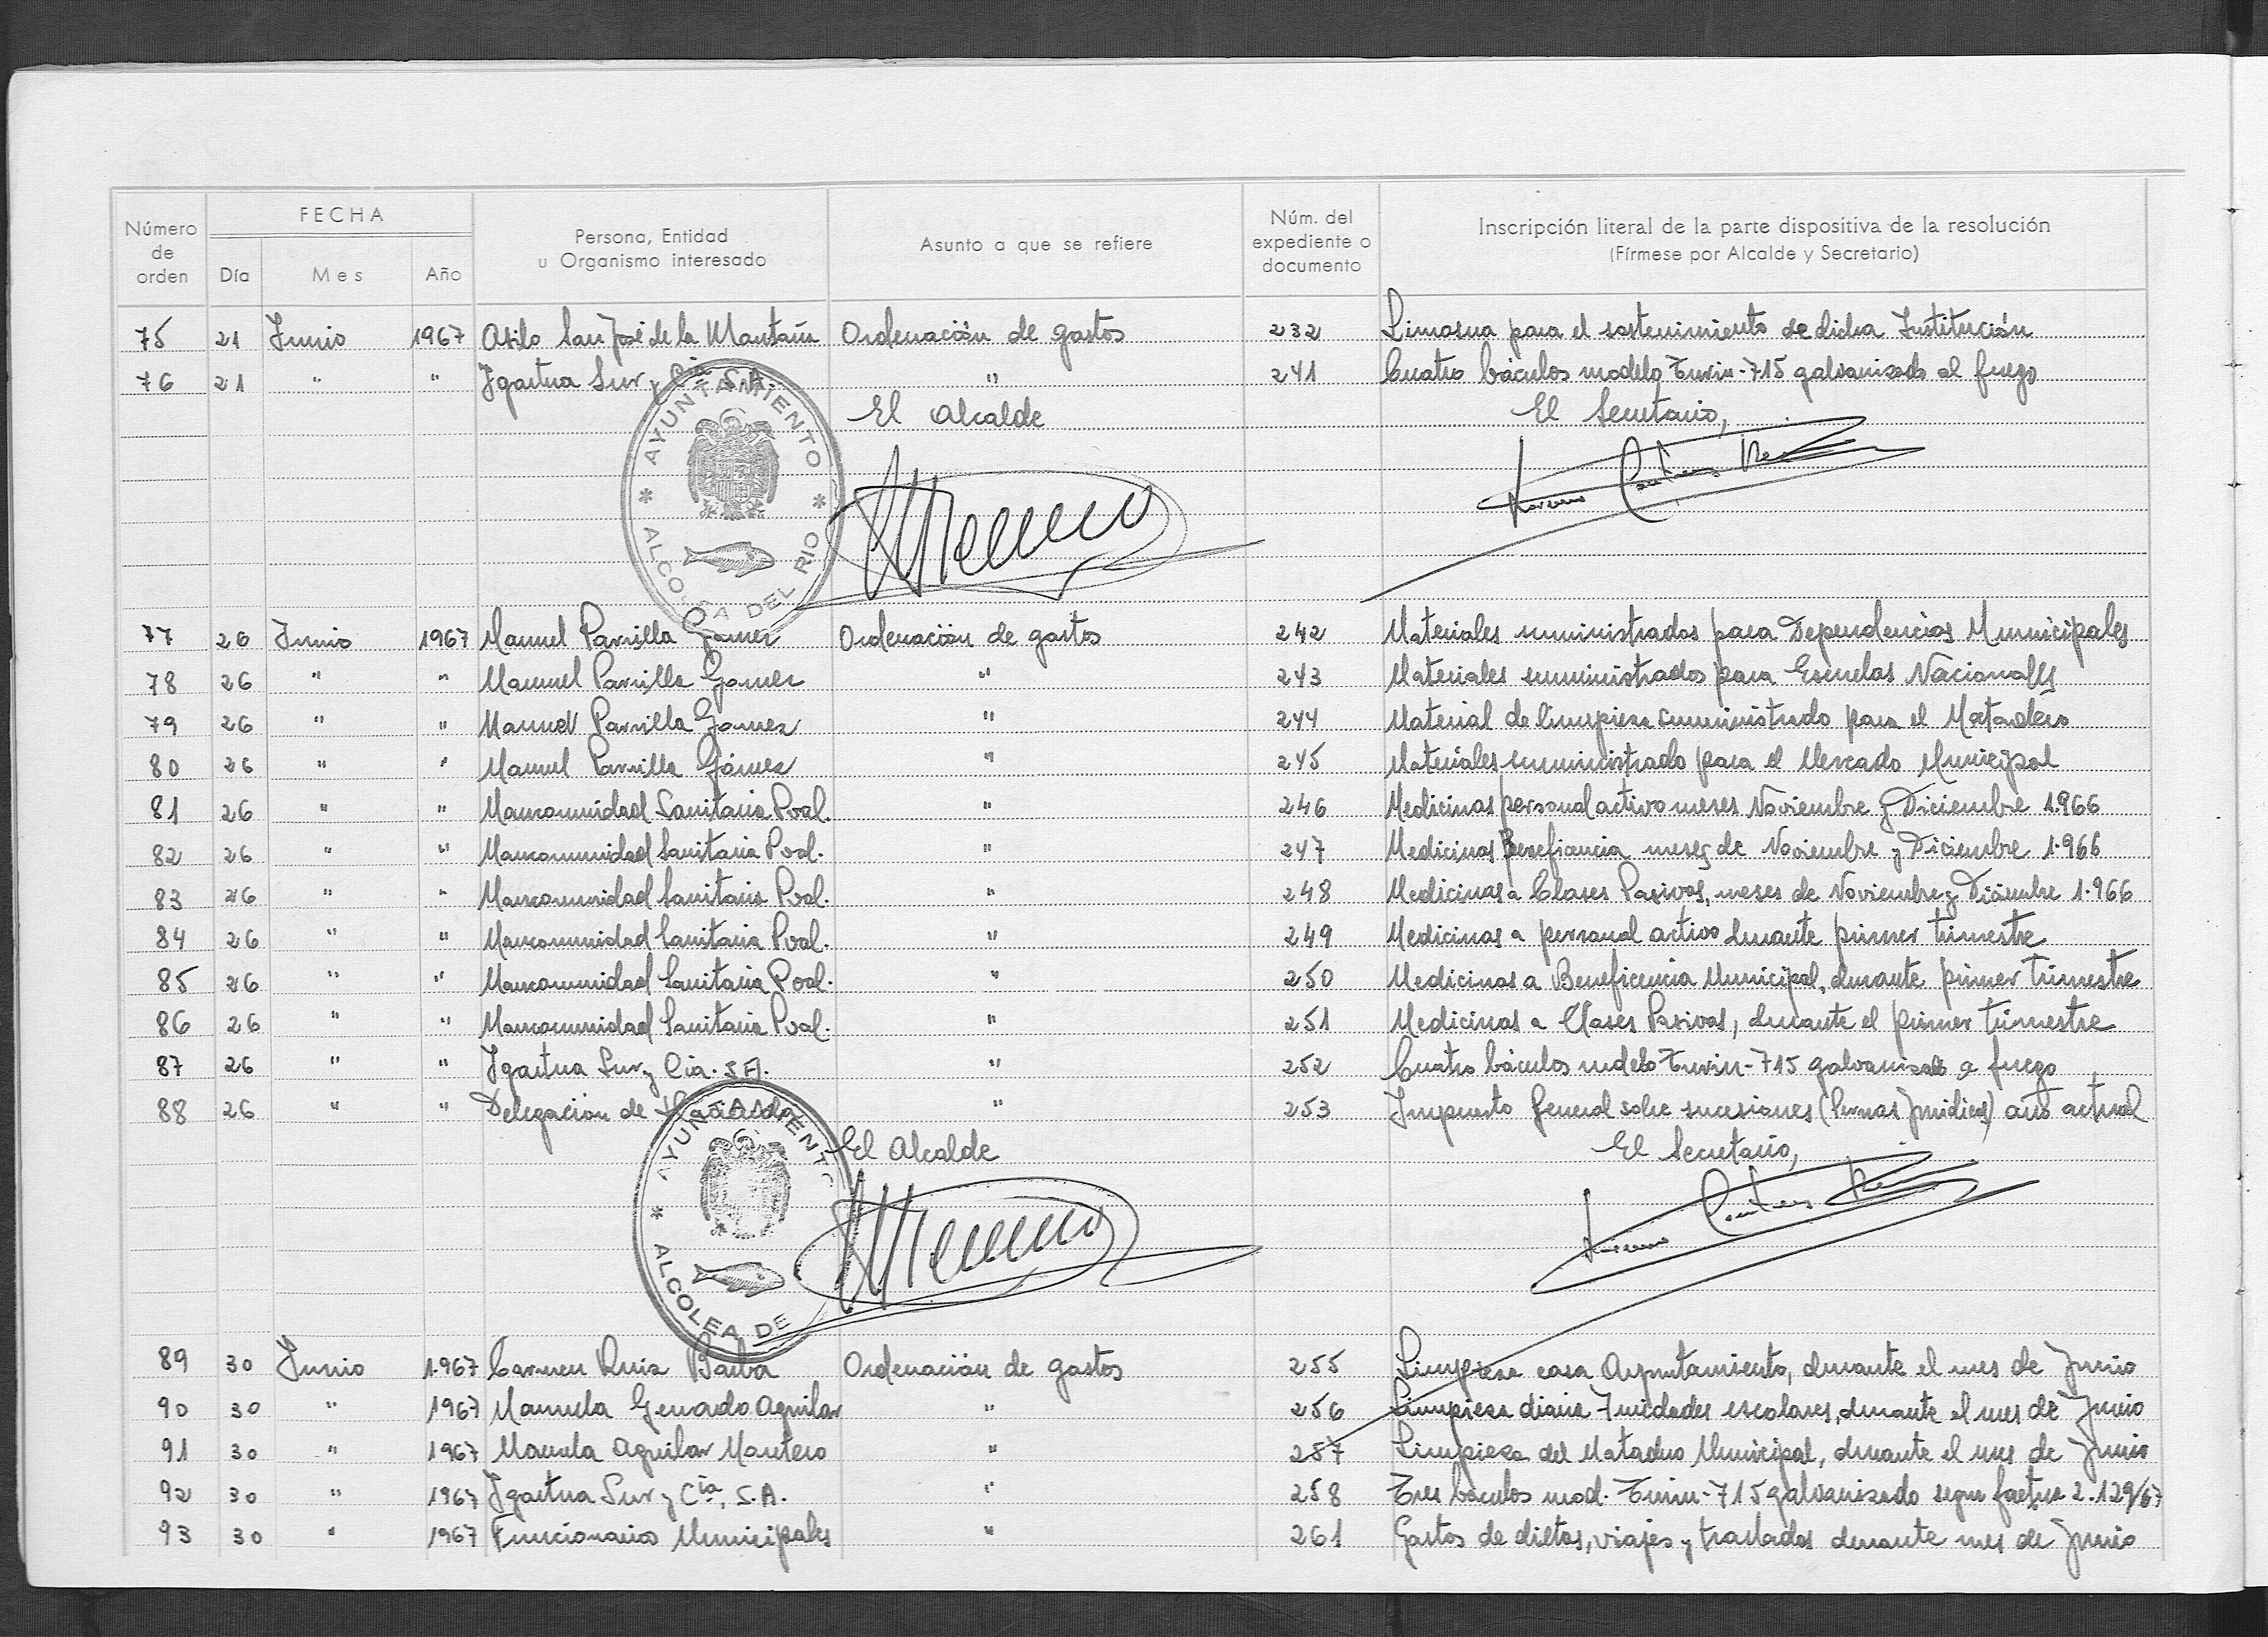 Número de orden
FECHA
Día
Mes
Año
Persona, Entidad u Organismo interesado
Asunto a que se refiere
Núm. del expediente o documento
Inscripción literal de la parte dispositiva de la resolución
(Fírmese por Alcalde y Secretario)
75 21 Junio 1967 Asilo San José de la Montaña Ordenación de gastos 232 Limosna para el sostenimiento de dicha Institución
76 21 " " Igartua Sur y Cía S.A. " 241 Cuatro báculos modelo Turin-715 galvanizado al fuego
El Alcalde El Secretario,
AYUNTAMIENTO * ALCOLEA DEL RIO *
77 26 Junio 1967 Manuel Parrilla Gomez Ordenación de gastos 242 Materiales suministrados para Dependencias Municipales
78 26 " " Manuel Parrilla Gomez " 243 Materiales suministrados para Escuelas Nacionales
79 26 " " Manuel Parrilla Gomez " 244 Material de limpieza suministrado para el Matadero
80 26 " " Manuel Parrilla Gómez " 245 Materiales suministrado para el Mercado Municipal
81 26 " " Mancomunidad Sanitaria Poal. " 246 Medicinas personal activo meses Noviembre y Diciembre 1.966
82 26 " " Mancomunidad Sanitaria Poal. " 247 Medicinas Beneficencia meses de Noviembre y Diciembre 1.966
83 26 " " Mancomunidad Sanitaria Poal. " 248 Medicinas a Clases Pasivas, meses de Noviembre y Diciembre 1.966
84 26 " " Mancomunidad Sanitaria Poal. " 249 Medicinas a personal activo durante primer trimestre
85 26 " " Mancomunidad Sanitaria Poal. " 250 Medicinas a Beneficencia Municipal, durante primer trimestre
86 26 " " Mancomunidad Sanitaria Poal. " 251 Medicinas a Clases Pasivas, durante el primer trimestre
87 26 " " Igartua Sur y Cía. S.A. " 252 Cuatro báculos modelo Turin-715 galvanizado a fuego
88 26 " " Delegación de Hacienda " 253 Impuesto General sobre sucesiones (Pernas Jurídicas) año actual
El Alcalde El Secretario,
AYUNTAMIENTO * ALCOLEA DE
89 30 Junio 1.967 Carmen Ruiz Barba Ordenación de gastos 255 Limpieza casa Ayuntamiento, durante el mes de Junio
90 30 " 1967 Manuela Genado Aguilar " 256 Limpieza diaria 7 unidades escolares, durante el mes de Junio
91 30 " 1967 Manuela Aguilar Montero " 257 Limpieza del Matadero Municipal, durante el mes de Junio
92 30 " 1967 Igartua Sur y Cía, S.A. " 258 Tres báculos mod. Turin-715 galvanizado segun factura 2.129/67
93 30 " 1967 Funcionarios Municipales " 261 Gastos de dietas, viajes y traslados durante mes de Junio